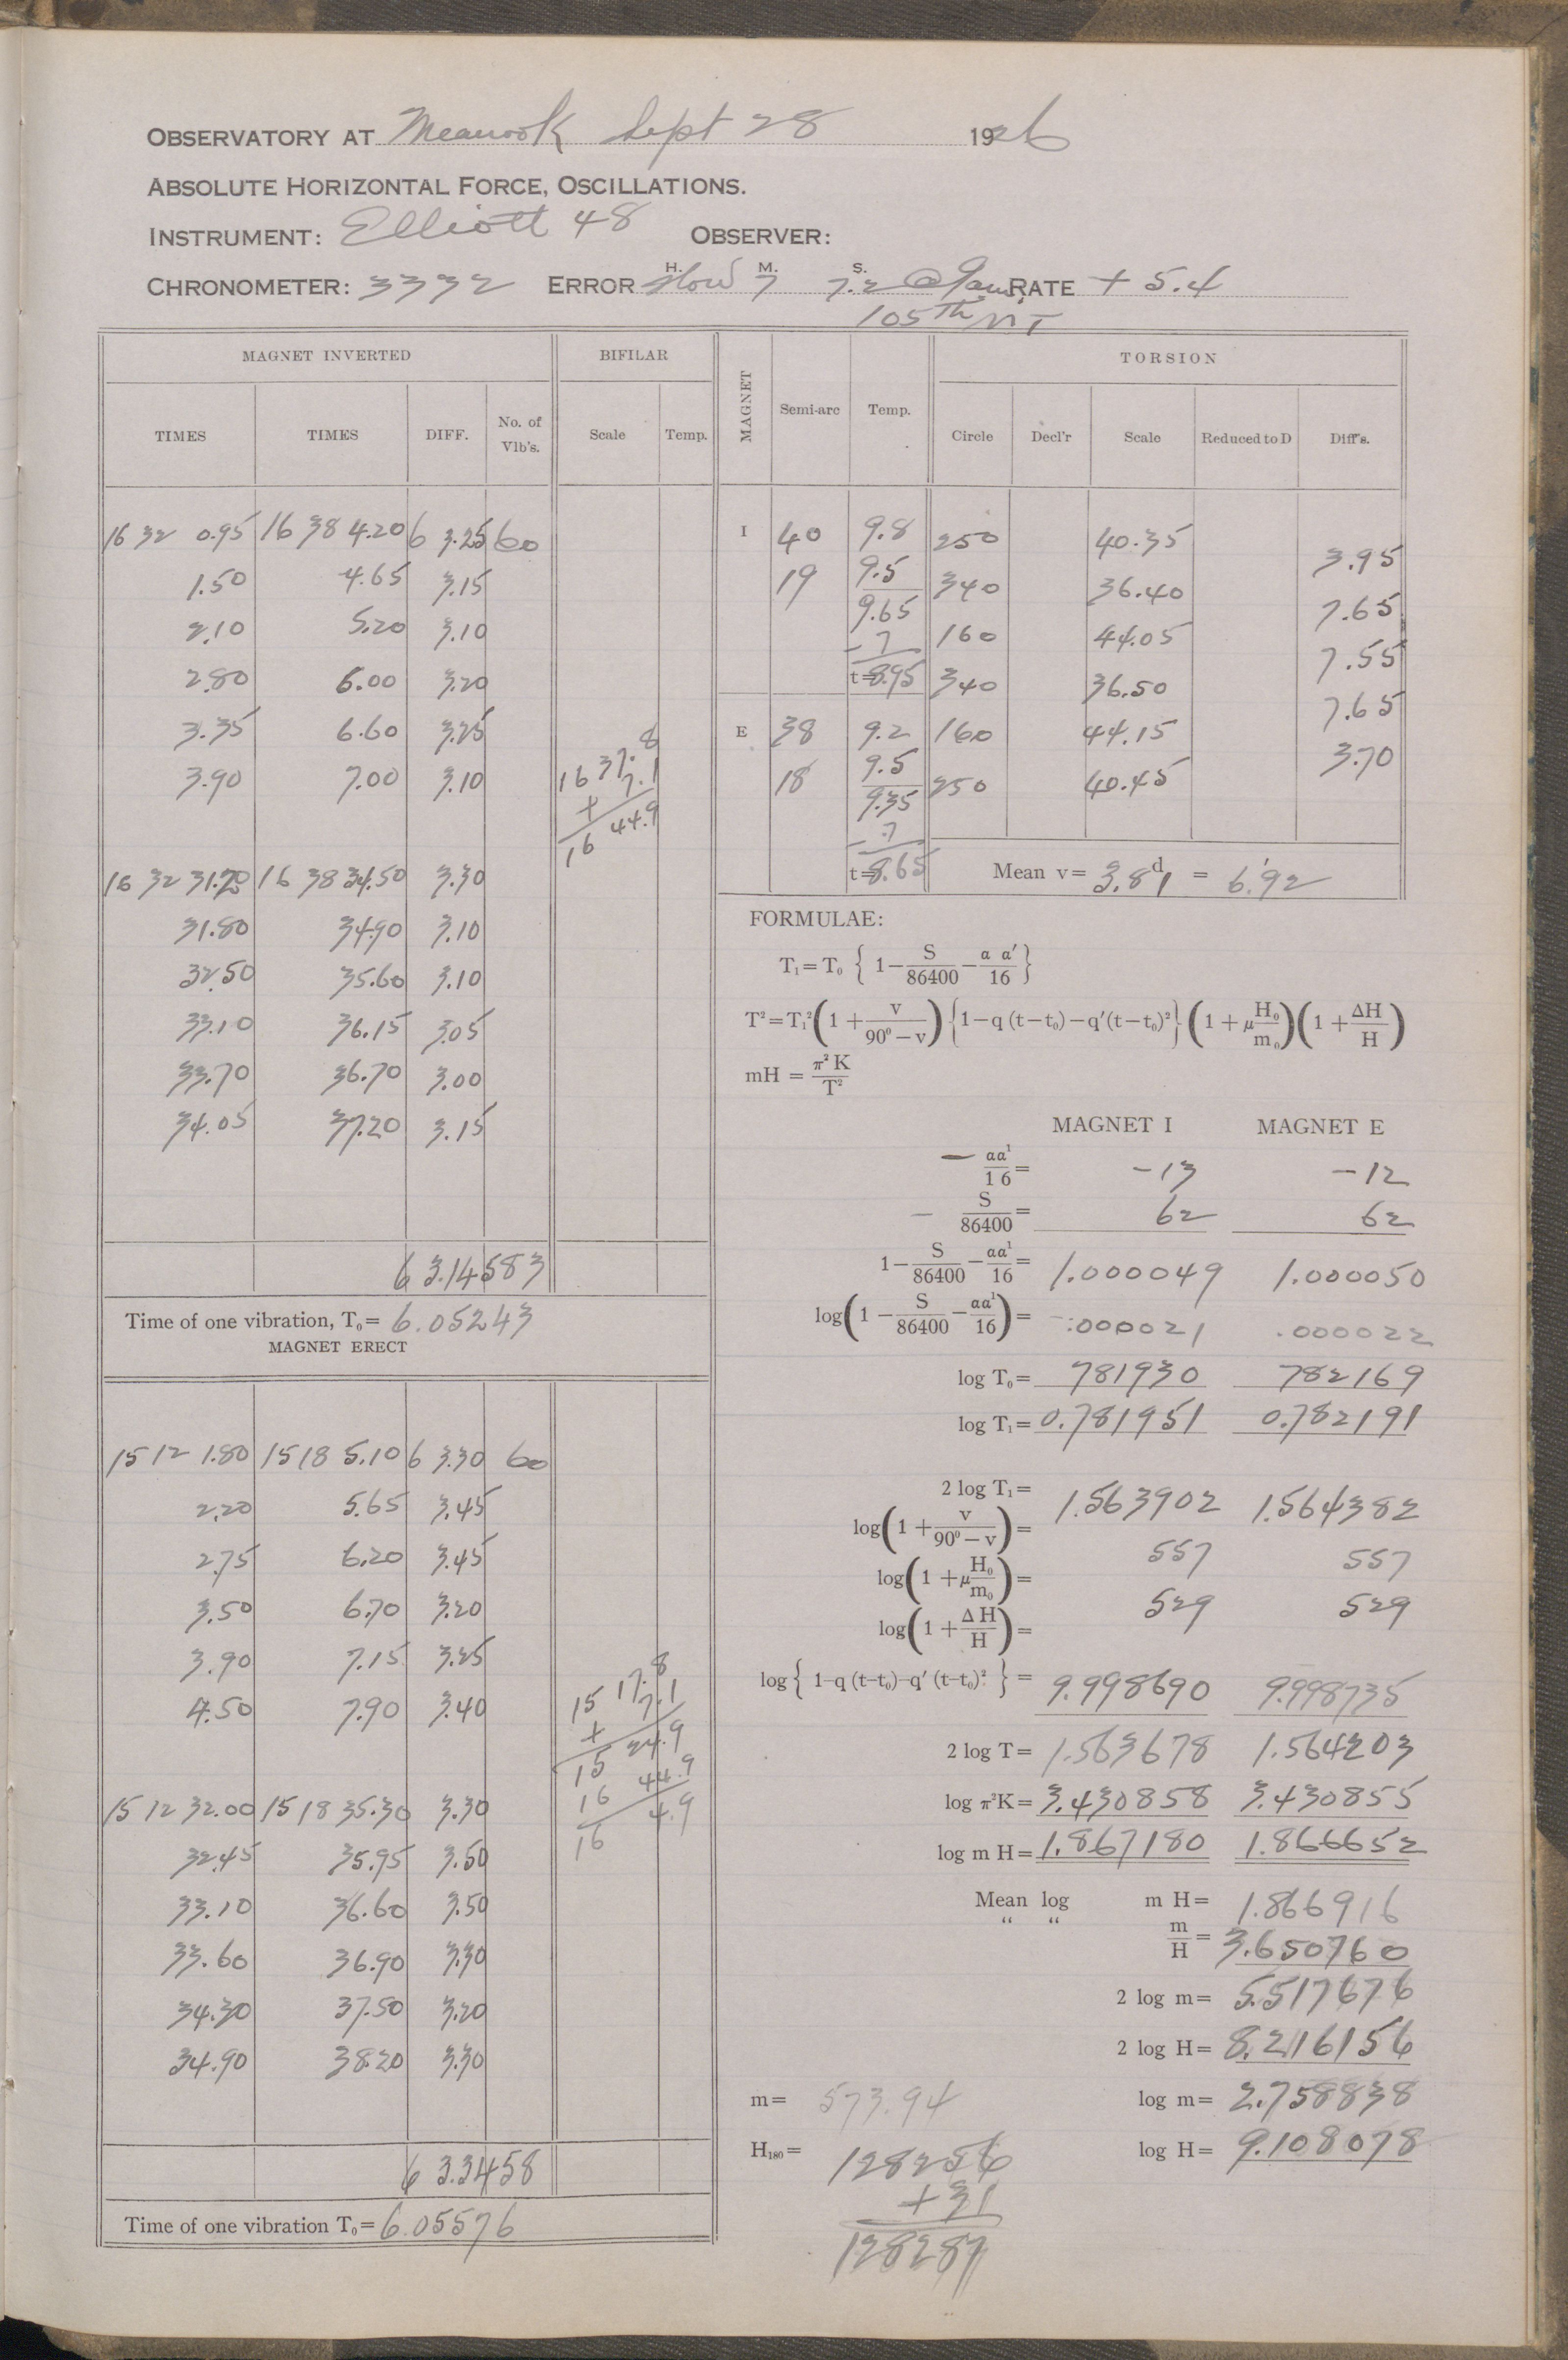 OBSERVATORY AT Meanook Sept 28 1926
ABSOLUTE HORIZONTAL FORCE, OSCILLATIONS.
INSTRUMENT: Elliott 48 OBSERVER:
CHRONOMETER: 3332 ERROR H. M. S. Slow 7 7.2 @ 9am RATE + 5.4
105th MT
MAGNET INVERTED BIFILAR
TIMES TIMES DIFF. No. of Vib's. Scale Temp.
16 32 0.95 16 38 4.20 6 3.25 60
1.50 4.65 3.15
2.10 5.20 3.10
2.80 6.00 3.20
3.35 6.60 3.25
3.90 7.00 3.10
16 37.8
+ 7.1
16 44.9
16 32 31.20 16 38 34.50 3.30
31.80 34.90 3.10
32.50 35.60 3.10
33.10 36.15 3.05
33.70 36.70 3.00
34.05 37.20 3.15
6 3.14583
Time of one vibration, T₀= 6.05243
MAGNET ERECT
15 12 1.80 15 18 5.10 6 3.30 60
2.20 5.65 3.45
2.75 6.20 3.45
3.50 6.70 3.20
3.90 7.15 3.25
4.50 7.90 3.40
15 17.8
+ 7.1
15 24.9
16 44.9
16 4.9
15 12 32.00 15 18 35.30 3.30
32.45 35.95 3.50
33.10 36.60 3.50
33.60 36.90 3.30
34.30 37.50 3.20
34.90 38.20 3.30
6 3.3458
Time of one vibration T₀= 6.05576
MAGNET Semi-arc Temp. TORSION
Circle Decl'r Scale Reduced to D Diff's.
I 40 9.8 250 40.35
3.95
19 9.5 340 36.40
9.65 7.65
-.7 160 44.05
7.55
t=8.95 340 36.50
7.65
E 38 9.2 160 44.15
9.5 3.70
18 9.35 250 40.45
-.7
t=8.65
Mean v= 3.81ᵈ = 6.'92
FORMULAE:
T₁=T₀ { 1−S/86400−α α′/16 }
T²=T₁²(1+v/90⁰−v){1−q (t−t₀)−q′(t−t₀)²}(1+μH₀/m₀)(1+ΔH/H)
mH = π²K/T²
MAGNET I MAGNET E
− αα¹/16= −13 −12
− S/86400= 62 62
1−S/86400−αα¹/16= 1.000049 1.000050
log(1−S/86400−αα¹/16)= .000021 .000022
log T₀= 781930 782169
log T₁= 0.781951 0.782191
2 log T₁= 1.563902 1.564382
log(1+v/90⁰−v)= 557 557
log(1+μH₀/m₀)= 529 529
log(1+ΔH/H)=
log{ 1-q (t-t₀)-q′ (t-t₀)² } = 9.998690 9.998735
2 log T= 1.563678 1.564203
log π²K= 3.430858 3.430855
log m H= 1.867180 1.866652
Mean log m H= 1.866916
“ “ m/H= 3.650760
2 log m= 5.517676
2 log H= 8.216156
m= 573.94 log m= 2.758838
H₁₈₀= 128256 log H= 9.108078
+31
128287